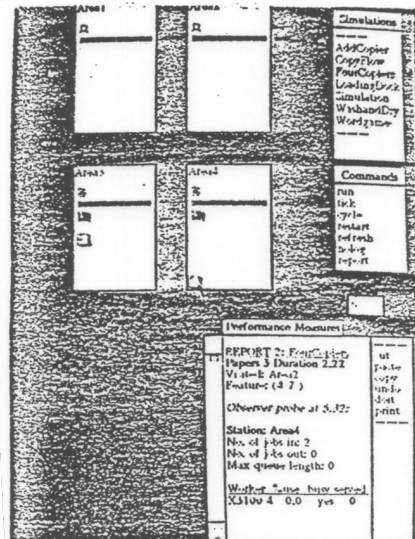 Area1
Area2
Simulations
AddCopier
CopyFlow
FourCopiers
LoadingDock
Simulation
WashandDry
Wordgame
Area3
Area4
Commands
run
tick
cycle
restart
refresh
report
Performance Measures
REPORT 2: FourCopiers
Papers 3 Duration 2.22
Visited: Area2
Feature: (4 7 )
Observer probe at
Station: Area4
No. of jobs in: 2
No. of jobs out: 0
Max queue length: 0
Worker busy served
X3100 4 0.0 yes 0
paste
copy
undo
print